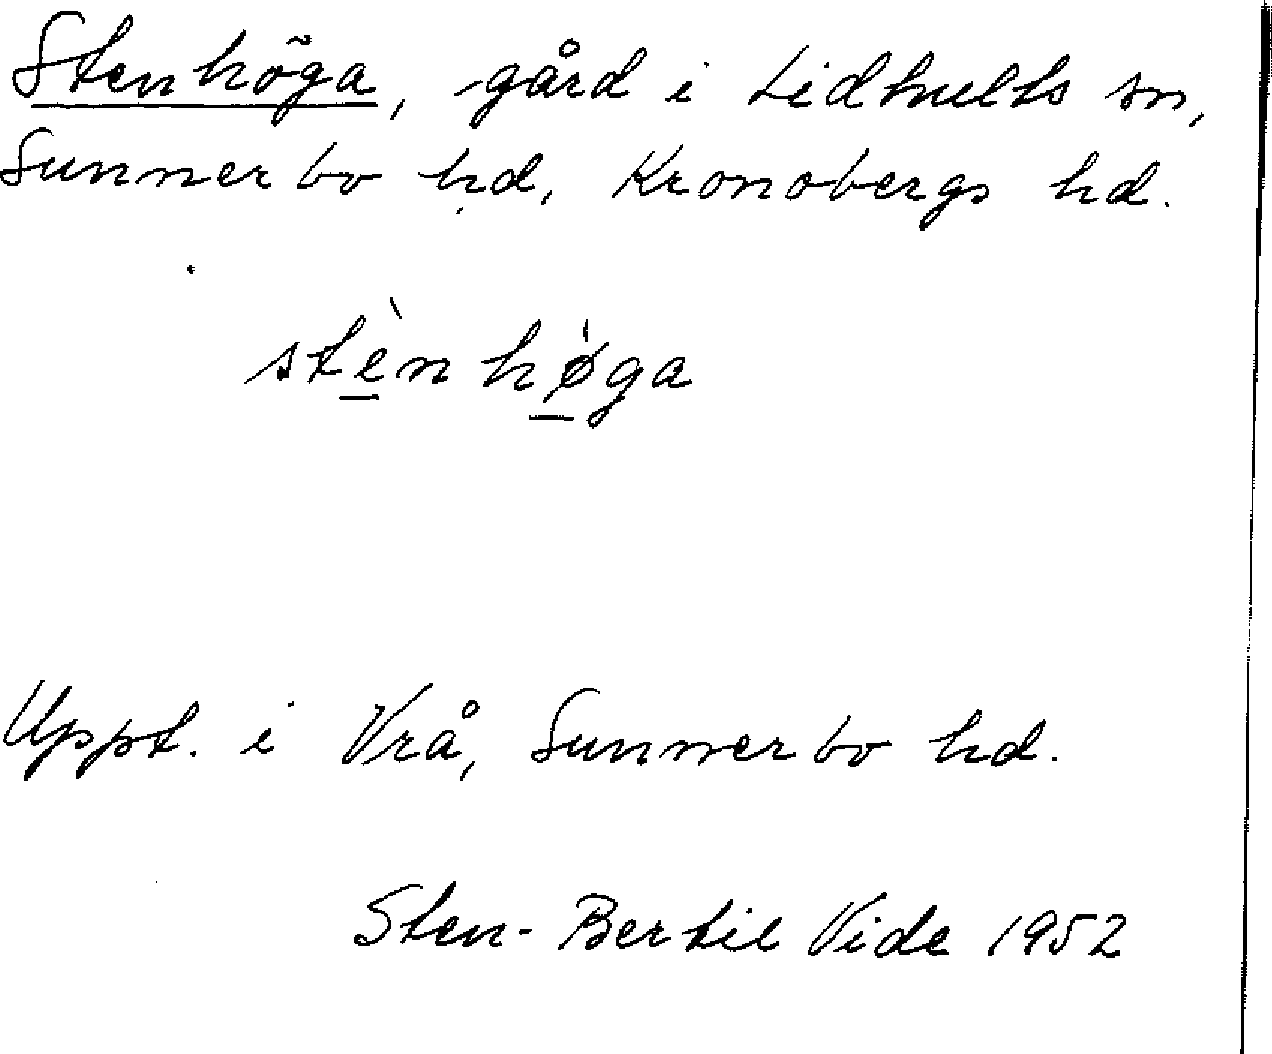 Stenhöga, gård i Lidhults sn,
Sunnerbo hd, Kronobergs hd.
stèn hø̍ga
Uppt. i Vrå, Sunnerbo hd.
Sten-Bertil Vide 1952